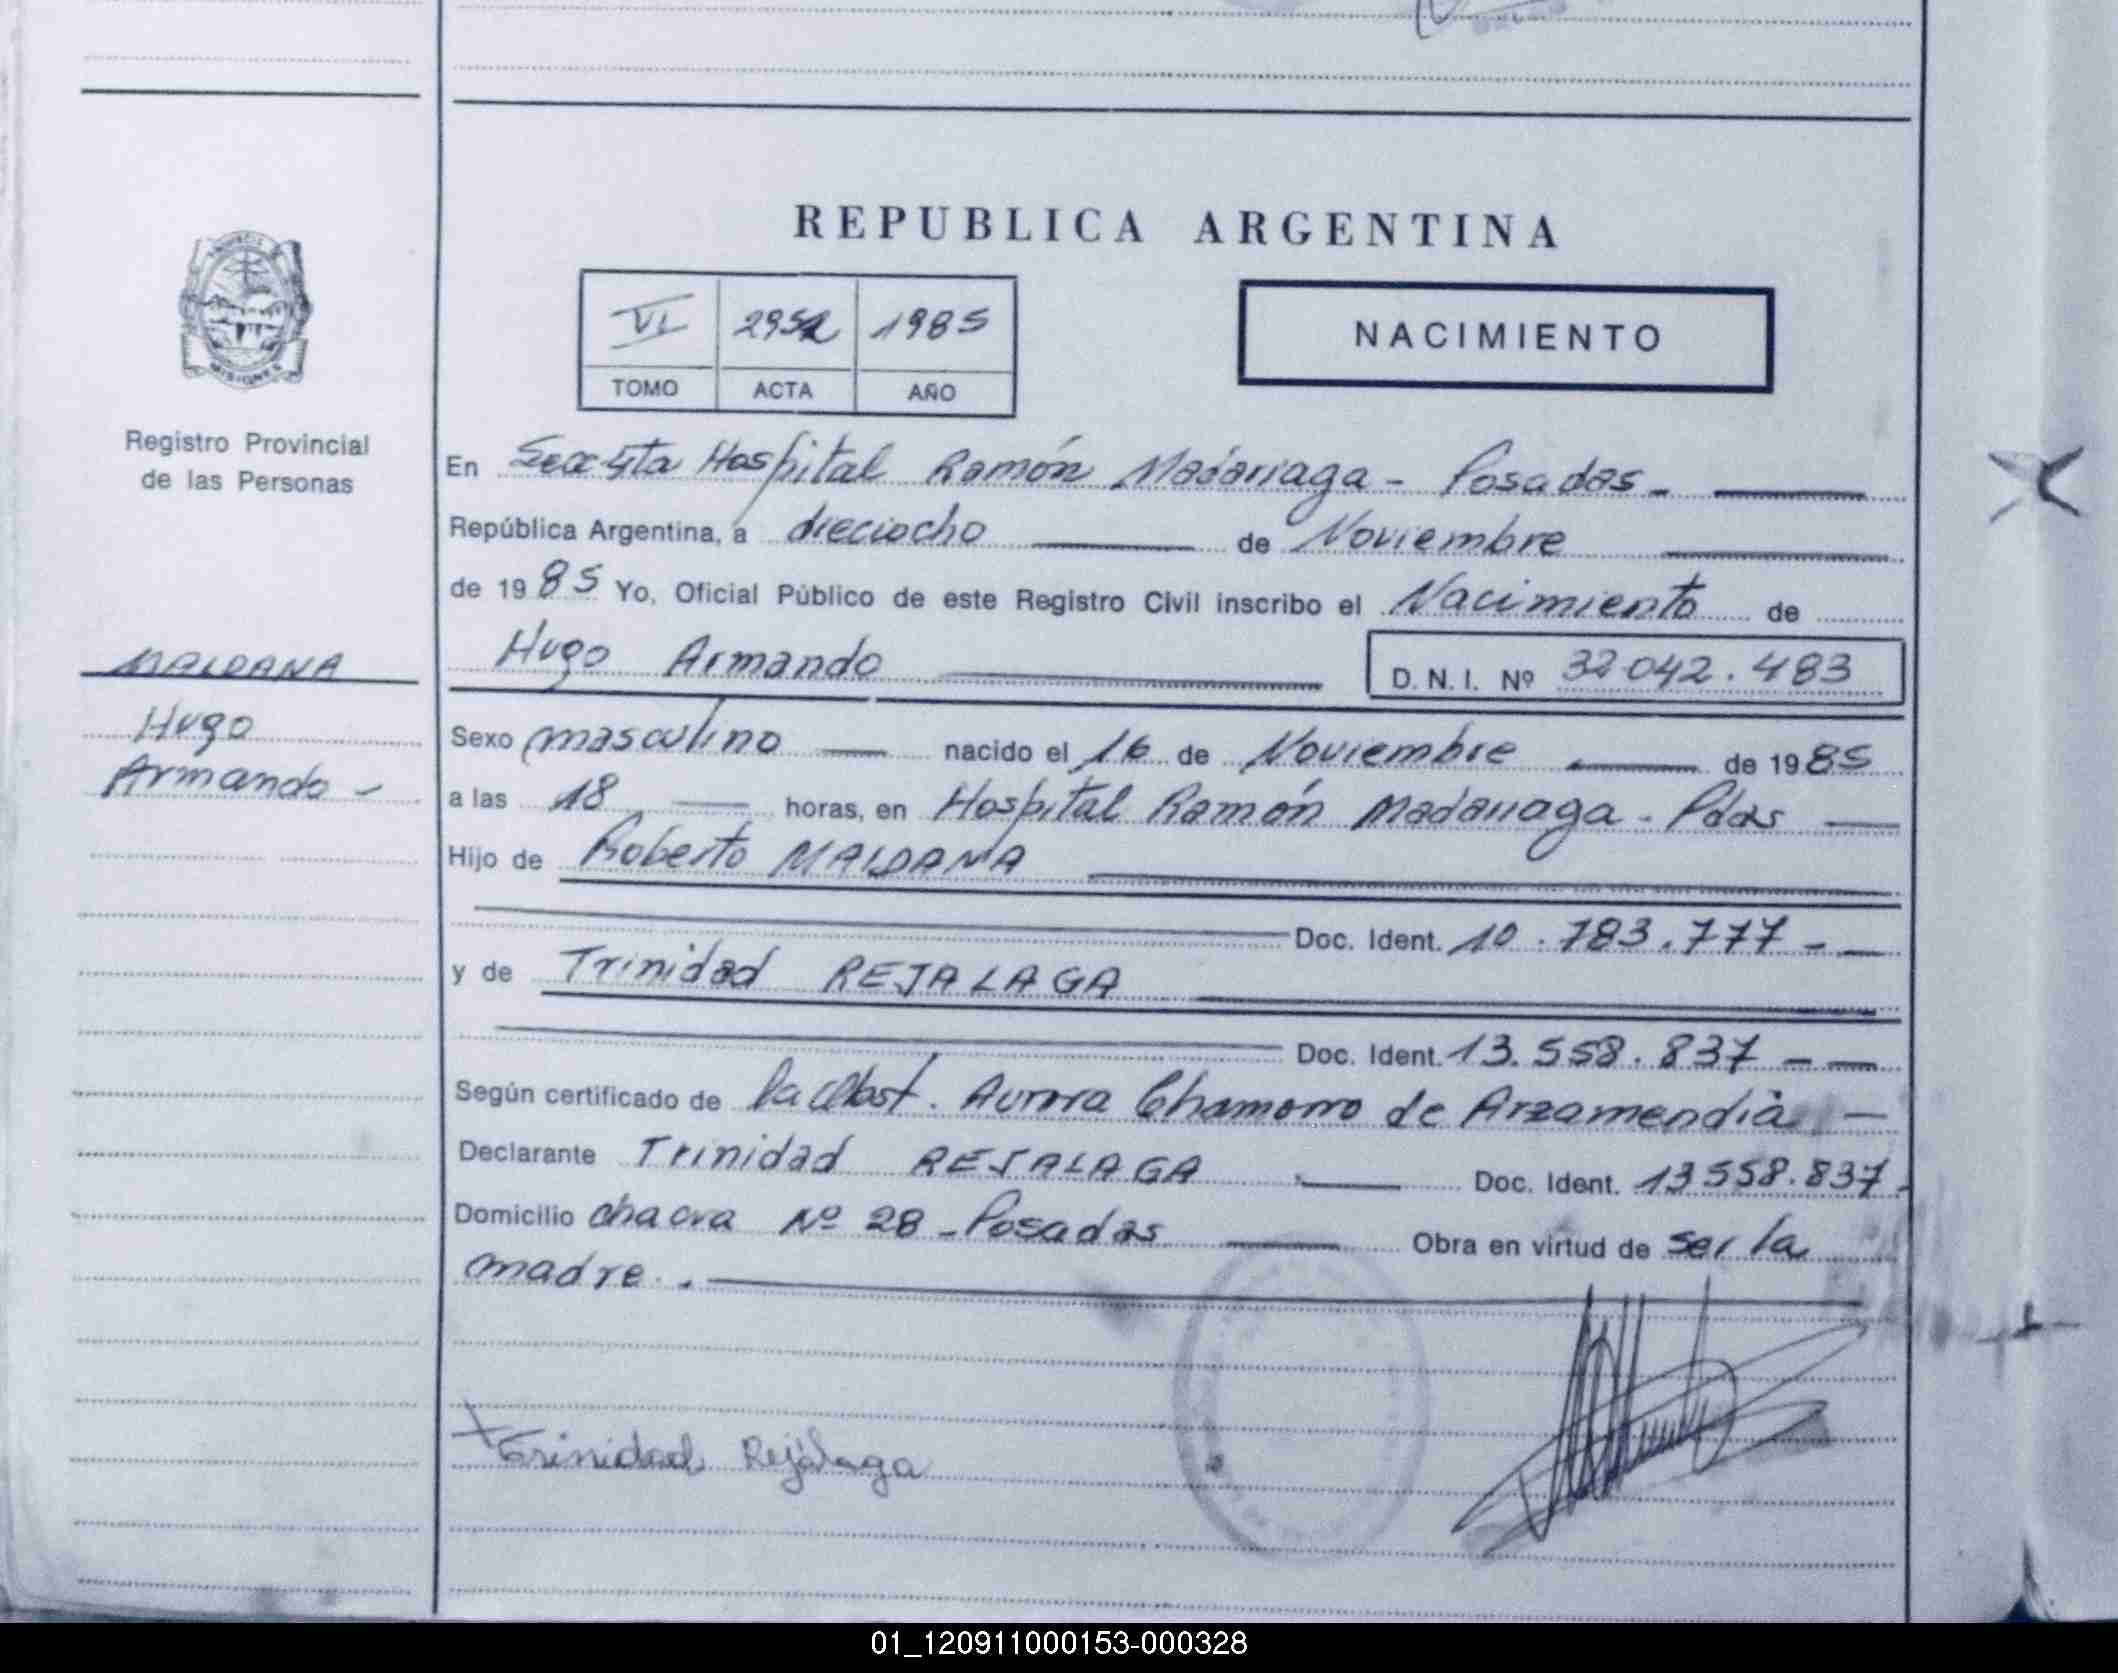 REPUBLICA ARGENTINA
VI 2952 1985
TOMO ACTA AÑO
NACIMIENTO
MISIONES
Registro Provincial
de las Personas
MALDANA
Hugo
Armando -
En Hospital Ramón Madariaga - Posadas -
República Argentina, a dieciocho de Noviembre
de 1985 Yo, Oficial Público de este Registro Civil inscribo el Nacimiento de
Hugo Armando D. N. I. Nº 32 042.483
Sexo masculino nacido el 16 de Noviembre de 1985
a las 18 horas, en Hospital Ramón Madariaga - Pdas
Hijo de Roberto MALDANA
Doc. Ident. 10.783.777 -
y de Trinidad REJALAGA
Doc. Ident. 13.558.837 -
Según certificado de la Obst. Aurora Chamorro de Arzamendia
Declarante Trinidad REJALAGA Doc. Ident. 13558.837 -
Domicilio chacra Nº 28 - Posadas Obra en virtud de ser la
madre.
Trinidad Rejalaga
01_120911000153-000328